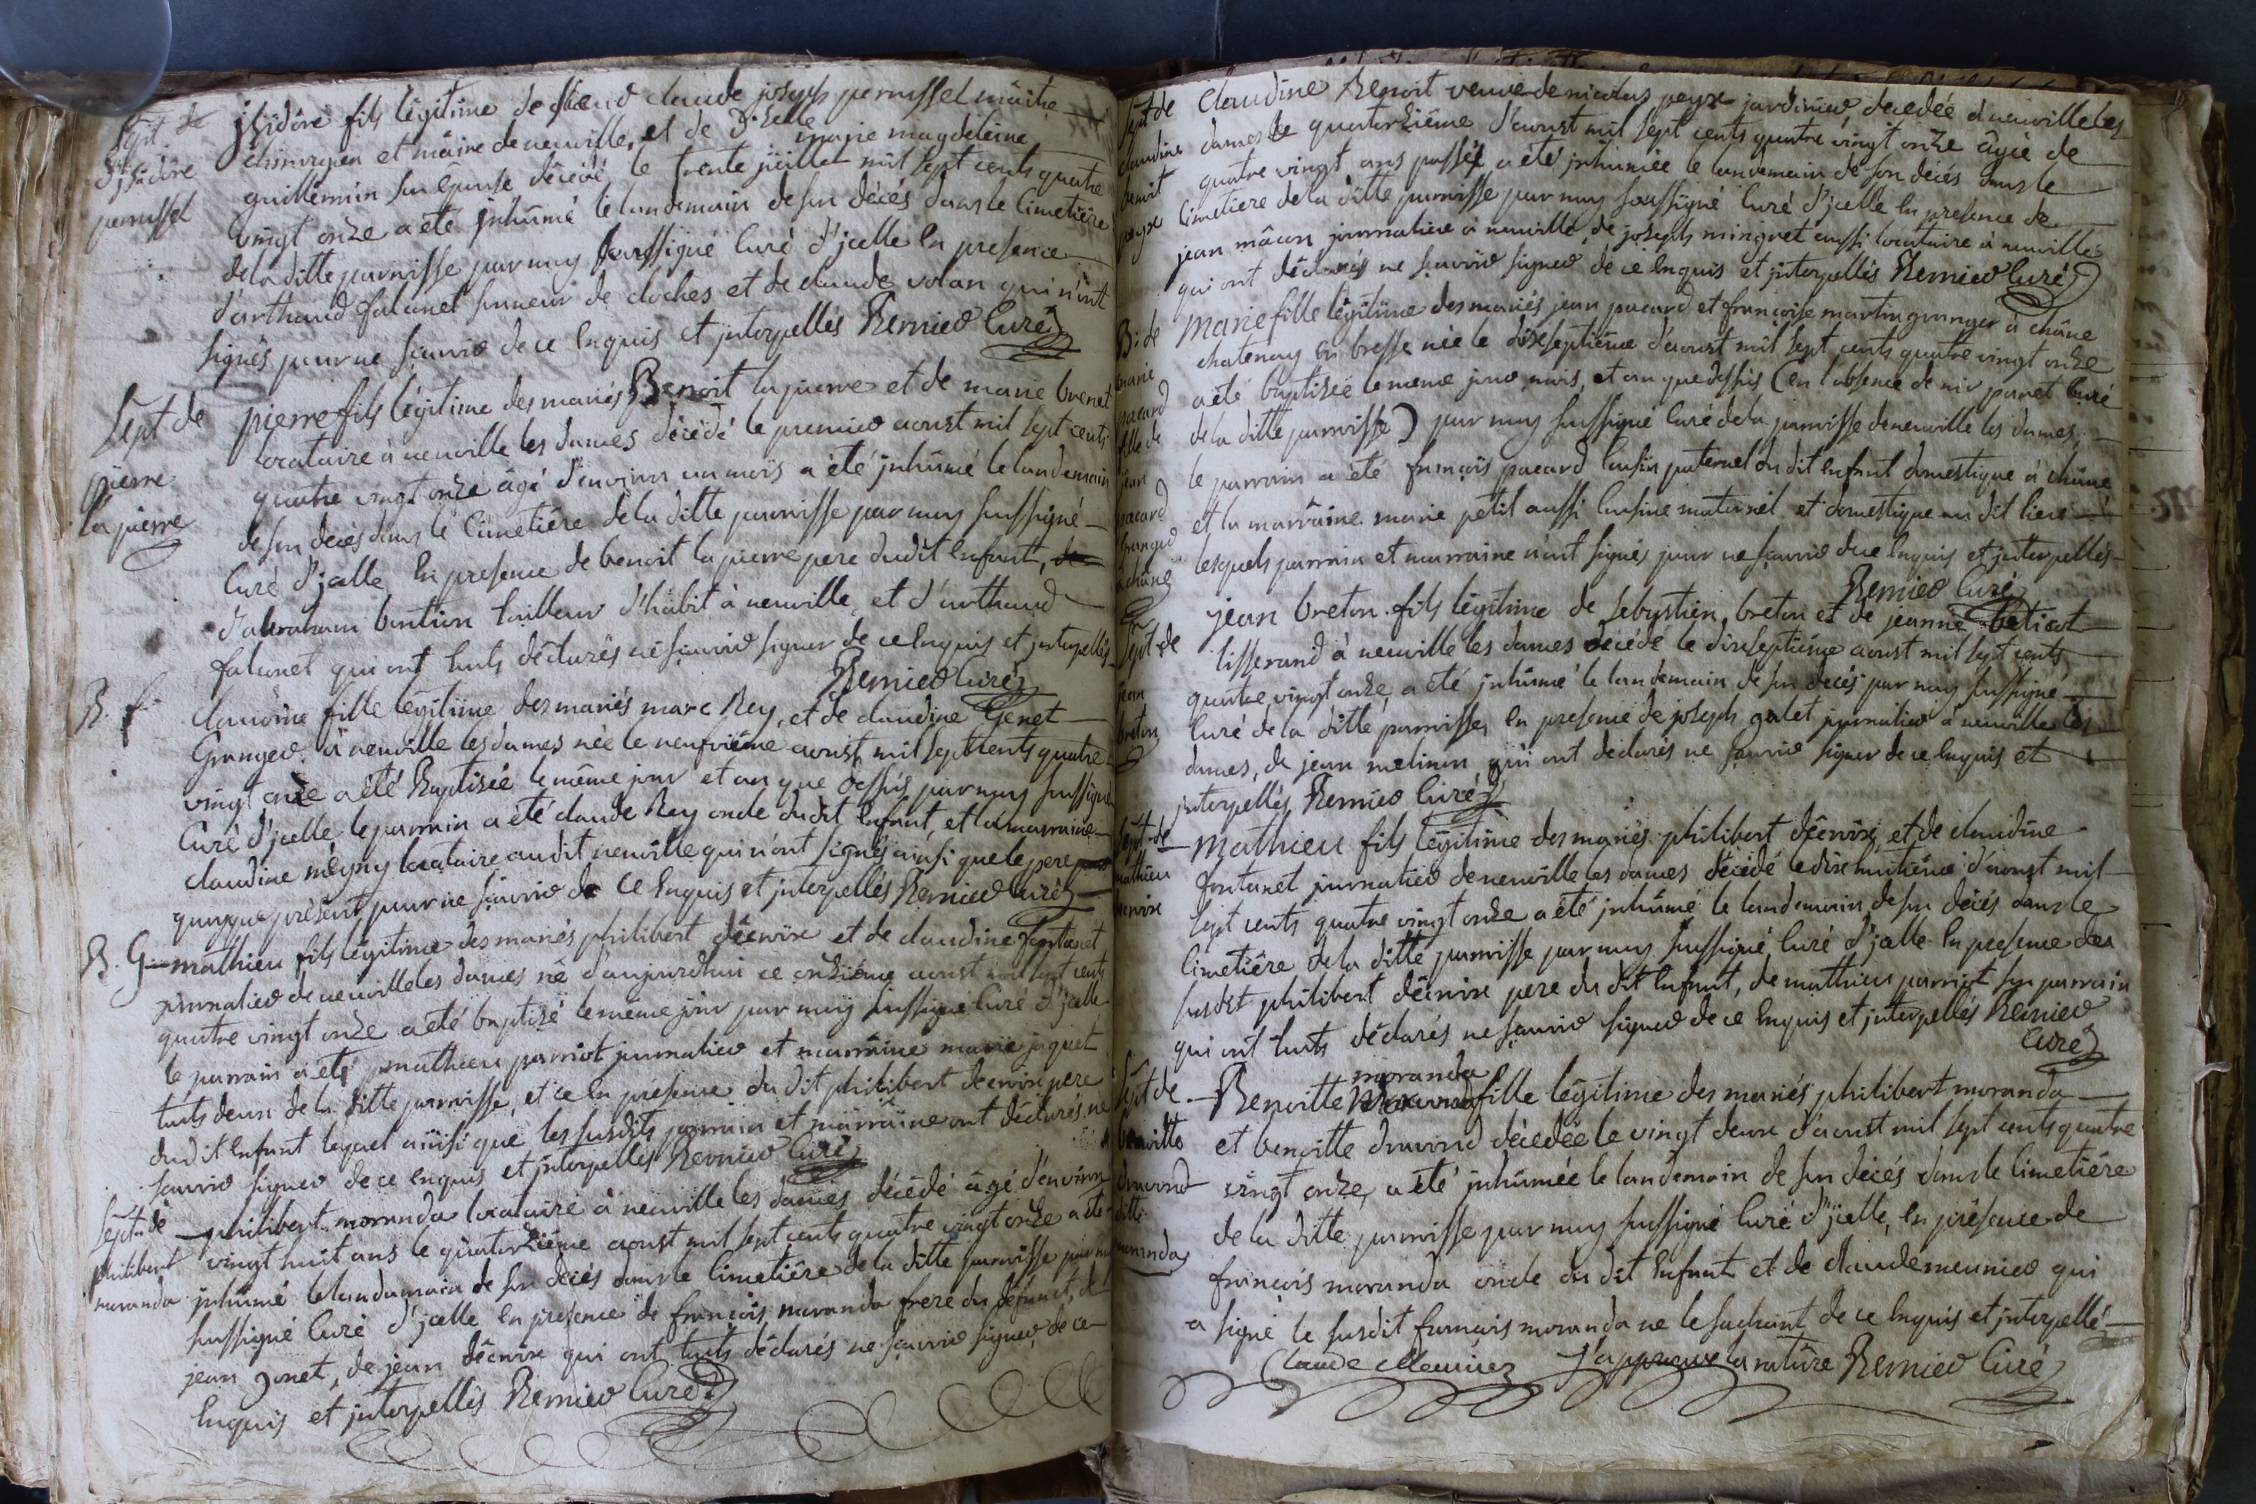 Sept. de
d'jsidôre
perrussel
jsidôre fils légitime de sieur claude joseph perrussel maitre
chirurgien et mâire de neuville, et de D.elle marie magdeleine
guillermin son épouse décédé le trente juillet mil sept cents quatre
vingt onze a été jnhûmé le landemain de son décés dans le Cimetiére
de la ditte parroisse par moy soussigné Curé d'jcelle En presence
d'arthaud falconet sonneur de cloches et de claude volan qui n'ont
signés pour ne sçavoir de ce Enquis et jnterpellés Remier Curé
Sept de
pierre
la pierre
pierre fils légitime des mariés Benoit la pierre et de marie brenet
locataire à neuville les dames décédé le premier aoust mil sept cents
quatre vingt onze âgé d'environ un mois a été jnhûmé le landemain
de son décès dans le Cimetiére de la ditte parroisse par moy soussigné
Curé d'jcelle En presence de benoit la pierre pere dudit Enfant, de
d'abraham bontion tailleur d'habit à neuville, et d'arthaud
falconet qui ont touts déclarés ne sçavoir signer de ce Enquis et jnterpellés
Remier Curé
B. f
claudine fille légitime des mariés marc Rey, et de claudine Genet
Granger à neuville les dames née le neufviéme aoust mil sept cents quatre
vingt onze a été Baptisée le même jour et an que dessus par moy soussigné
Curé d'jcelle le parrain a été claude Rey oncle dudit Enfant, et la marraine
claudine mégny locataire audit neuville qui n'ont signés ainsi que le pere
quoyque présent pour ne sçavoir de Ce Enquis et jnterpellés Remier Curé
B. G
mathieu fils légitime des mariés philibert décroix et de claudine fontanet
journalier de neuville les dames né d'aujourdhui ce onziéme aoust mil sept cents
quatre vingt onze a été baptisé le même jour par moy soussigné Curé d'jcelle
le parrain a été mathieu parriot journalier et marraine marie joguet
touts deux de la ditte parroisse, et ce En presence du dit philibert décroix pere
dudit Enfant lequel ainsi que les susdits parrain et marraine ont déclarés ne
sçavoir signer de ce Enquis et jnterpellés Remier Curé
Sept. de
philibert
moranda
philibert moranda locataire à neuville les dames décédé âgé d'environ
vingt huit ans le quatorziéme aoust mil sept cents quatre vingt onze a été
jnhûmé le landemain de son décés dans le Cimetiére de la ditte parroisse par moy
soussigné Curé d'jcelle En presence de françois moranda frere du défunct, de
jean Jonet, de jean décroix qui ont touts déclarés ne sçavoir signer de ce
Enquis et jnterpellés Remier Curé
Sept de
claudine
benoit
peyre
Claudine Benoit veuve de nicolas peyre jardinier, décédée à neuville les
dames le quatorziéme d'aoust mil sept cents quatre vingt onze âgée de
quatre vingt ans passés a été jnhumée le landemain de son décés dans le
Cimetiere de la ditte parroisse par moy soussigné Curé d'jcelle En presence de
jean mâcon journalier à neuville, de joseph minguet aussi locataire à neuville
qui ont déclarés ne sçavoir signer de ce Enquis et jnterpellés Remier Curé
B: de
marie
pacard
fille de
jean
pacard
Granger
à châne
marie fille légitime des mariés jean pacard et françoise martin granger à châne
chatenay en bresse née le dixseptiéme d'aoust mil sept cents quatre vingt onze
a été baptisée le même jour, mois, et an que dessus (en l'absence de mr panet Curé
de la ditte parroisse) par moy soussigné Curé de la parroisse de neuville les dames,
le parrain a été françois pacard Cousin paternel du dit Enfant domestique à châne
et la marraine marie petit aussi Cousine maternel et domestique au dit lieu
lesquels parrain et marraine n'ont signés pour ne sçavoir de ce Enquis et jnterpellés
Remier Curé
Sept de
jean
breton
jean breton fils légitime de sebastien breton et de jeanne beticat
tisserand à neuville les dames décédé le dixseptiéme aoust mil sept cents
quatre vingt onze, a été jnhûmé le landemain de son décés par moy soussigné
Curé de la ditte parroisse, en presence de joseph galet journalier à neuville les
dames, de jean melinon qui ont déclarés ne sçavoir signer de ce Enquis et
jnterpellés Remier Curé
Sept de
mathieu
décroix
mathieu fils légitime des mariés philibert décroix, et de claudine
fontanet journalier de neuville les dames décédé le dixhuitiéme d'aoust mil
sept cents quatre vingt onze a été jnhûmé le landemain de son décés dans le
Cimetiére de la ditte parroisse par moy soussigné Curé d'jcelle En presence du
susdit philibert décroix pere du dit Enfant, de mathieu parriot son parrain
qui ont touts déclarés ne sçavoir signer de ce Enquis et jnterpellés Remier
Curé
Sept de
benoitte
dravond
ditte
moranda
moranda
Benoitte fille légitime des mariés philibert moranda
et benoitte dravond décédée le vingt deux d'aoust mil sept cents quatre
vingt onze, a été jnhûmée le landemain de son décés dans le Cimetiére
de la ditte parroisse par moy soussigné Curé d'jcelle, En présence de
françois moranda oncle du dit Enfant et de claude meunier qui
a signé le susdit françois moranda ne le sachant de ce Enquis et jnterpellé
Claude Meunier J'approuve la rature Remier Curé